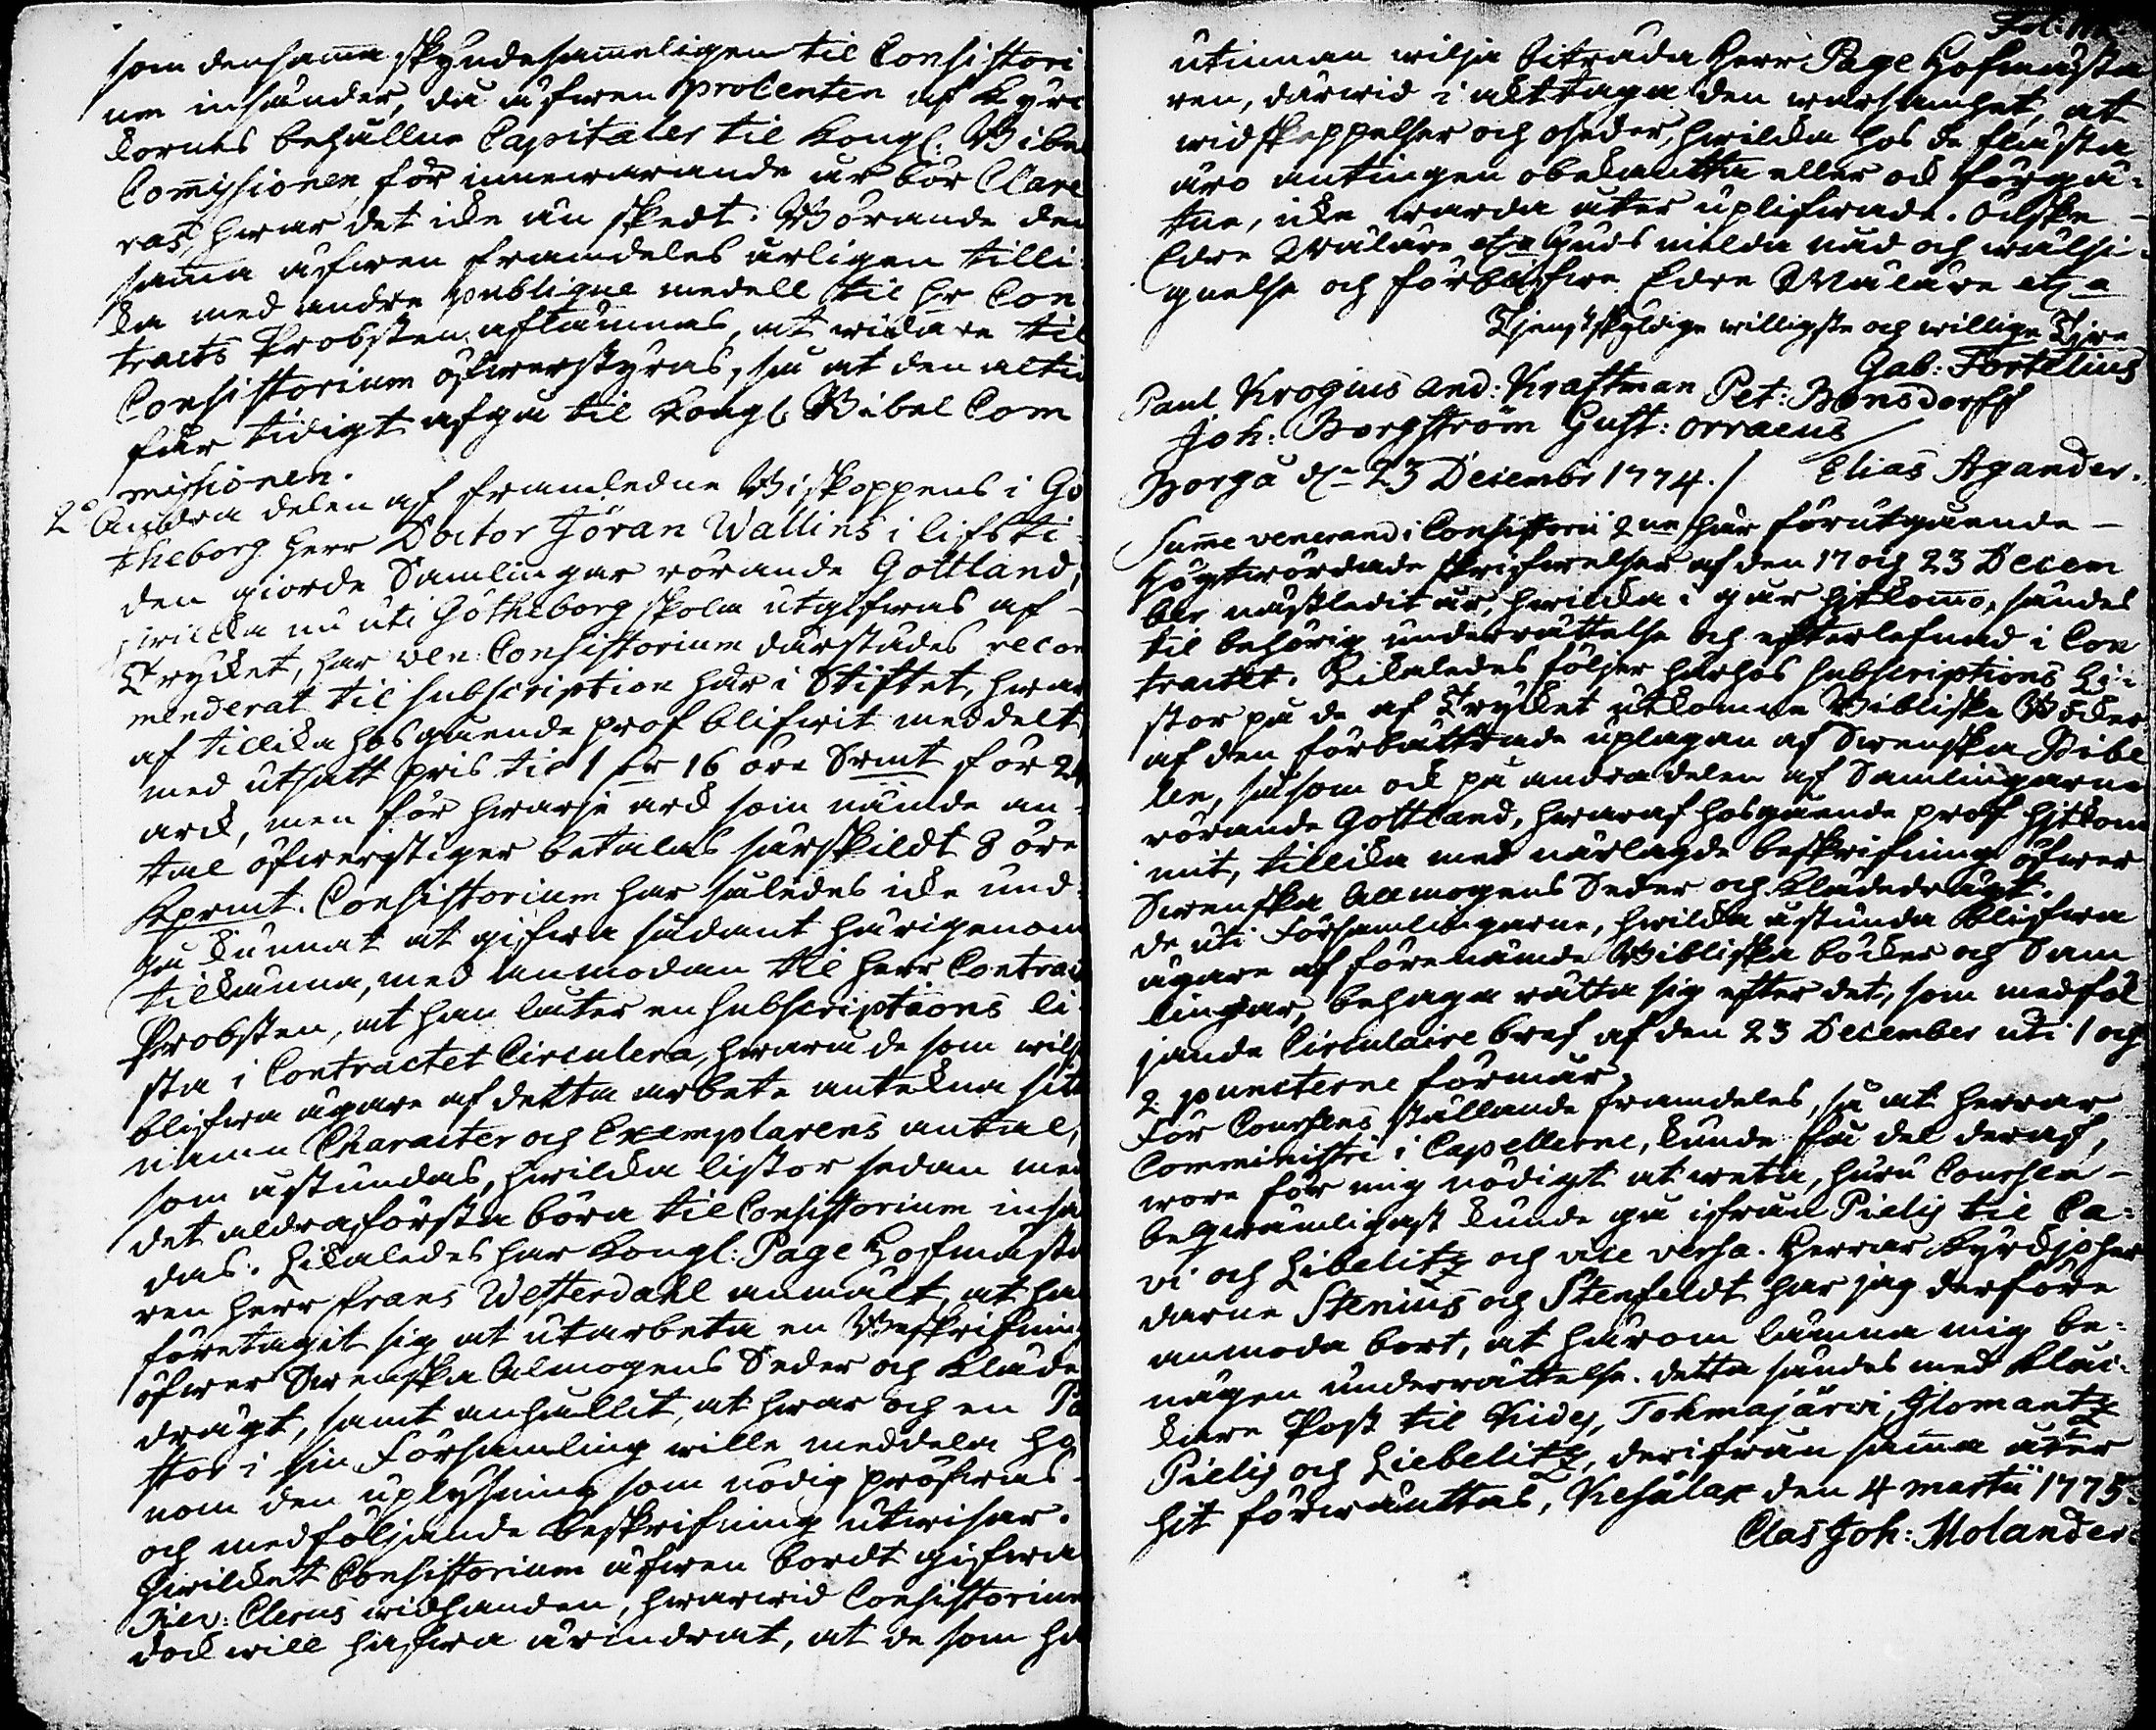 som densama skyndesameligen til Consistori
um insänder, då äfwen procenten af Kyrc
kornes behållne Capitaler til Kongl: Bibel
Comissionen för innewarande år bör Clare
ras, hwar det icke än skedt. Börande den
sama äfwen framdeles årligen tilli
ka med andre publique medell til hr Con
tracts Probsten aflämnas, at widare til
Consistorium öfwerstyras, så at den altid
får tidigt afgå til Kongl. Bibel Com
missionen.
2o Andra delen af framledne Biskoppens i Gö
theborg Herr Doctor Jöran Wallins i lifsti
den giorde Samlingar rörande Gottland,
hwilka nu uti Götheborg skola utgifwas af
Trycket, har ven: Consistorium därstädes recom
menderat til subscription här i Stiftet, hwar
af tillika hosgående prof blifwit meddelt
med utsatt pris til 1 dr 16 öre Srmt för 24
arck, men för hwarje arck som nämde an-
tal öfwerstiger betalas särskildt 8 öre
Kprmt. Consistorium har således icke und-
gå kunnat at gifwa sådant härigenom
tillkänna, med anmodan til Herr Contracts
Probsten, at han låter en subscriptions li
sta i Contractet Circulera, hwarå de som wilja
blifwa ägare af detta arbete anteckna sitt
namn Character och Exemplarens antal,
som åstundas, hwilka listor sedan med
det aldraförsta böra til Consistorium insän
das. Likaledes har Kongl: Page Hofmästa
ren Herr Frans Westerdahl anmält, at han
företagit sig at utarbeta en Beskrifning
öfwer Swenska Almogens Seder och Kläde
drägt, samt anhållit, at hwar och en Pa
stor i sin Församling wille meddela ho
nom den uplysning som nödig pröfwas
och medföljande beskrifning utwisar.
Hwilket Consistorium äfwen bordt gifwa
Rev: Clerus widhanden, hwarwid Consistorium
dock will hafwa ärindrat, at de som hä
utinnan wilja biträda Herr Page Hofmästa
ren, därwid i akttaga den warsamhet, at
widskeppelser och oseder, hwilka hos de flästa
äro antingen obekantta eller ock förgä-
tne, icke warda åter uplifwade. Önske
Edre Wälare etc Guds milda nåd och wälsi-
gnelse och förblifwe Edre Wälare etc
Tjenstskyldige willigste och willige Tjre
Gab: Fortelius
Paul Krogius And: Kraftman Pet: Bonsdorff
Joh: Borgström Gust: Orraeus
Borgå d. 23 Decembr 1774. / Elias Agander.
Sume venerandi Consistorii 2ne här förutgående
Högtwördade skrifwelser af den 17 och 23 Decem
ber nästledit år, hwilka i går hitkommo, sändes
til behörig underrättelse och efterlefnad i Con
tractet. Likaledes följer härhos subscriptions Li-
stor på de af Trycket utkomne Bibliske Böcker
af den förbättrade uplagan af Swenska Bibe
len, såsom ock på andra delen af Samlingarne
rörande Gottland, hwaraf hosgående prof hitkom
mit, tillika med närlagde beskrifning öfwer
Swenska Allmogens Seder och Klädedrägt.
de uti Församlingarne, hwilka åstunda blifwa
ägare af förenämde Bibliska böcker och Sam
lingar, behaga rätta sig efter det, som medföl
jande Circulaire bref af den 23 December uti 1 och
2 puncterne förmår.
För Courfens ställande framdeles, så at Herrar
Comministri i Capellerne, kunde få del deraf,
wore för mig nödigt at weta, huru Coursen
beqwämligast kunde gå ifrån Pielis til Ca-
vi och Libelitz och vice versa. Herrar Kyrckjoher
darne Stenius och Stenfeldt har jag derföre
anmoda bort, at härom lämna mig be-
nägen underrättelse. detta sändes med Kläc-
kare Post til Kides, Tohmajärwi, Ilomantz
Pielis och Liebelitz, derifrån sama åter
hit förwänttas, Kesälax den 4 martii 1775.
Clas Joh: Molander.